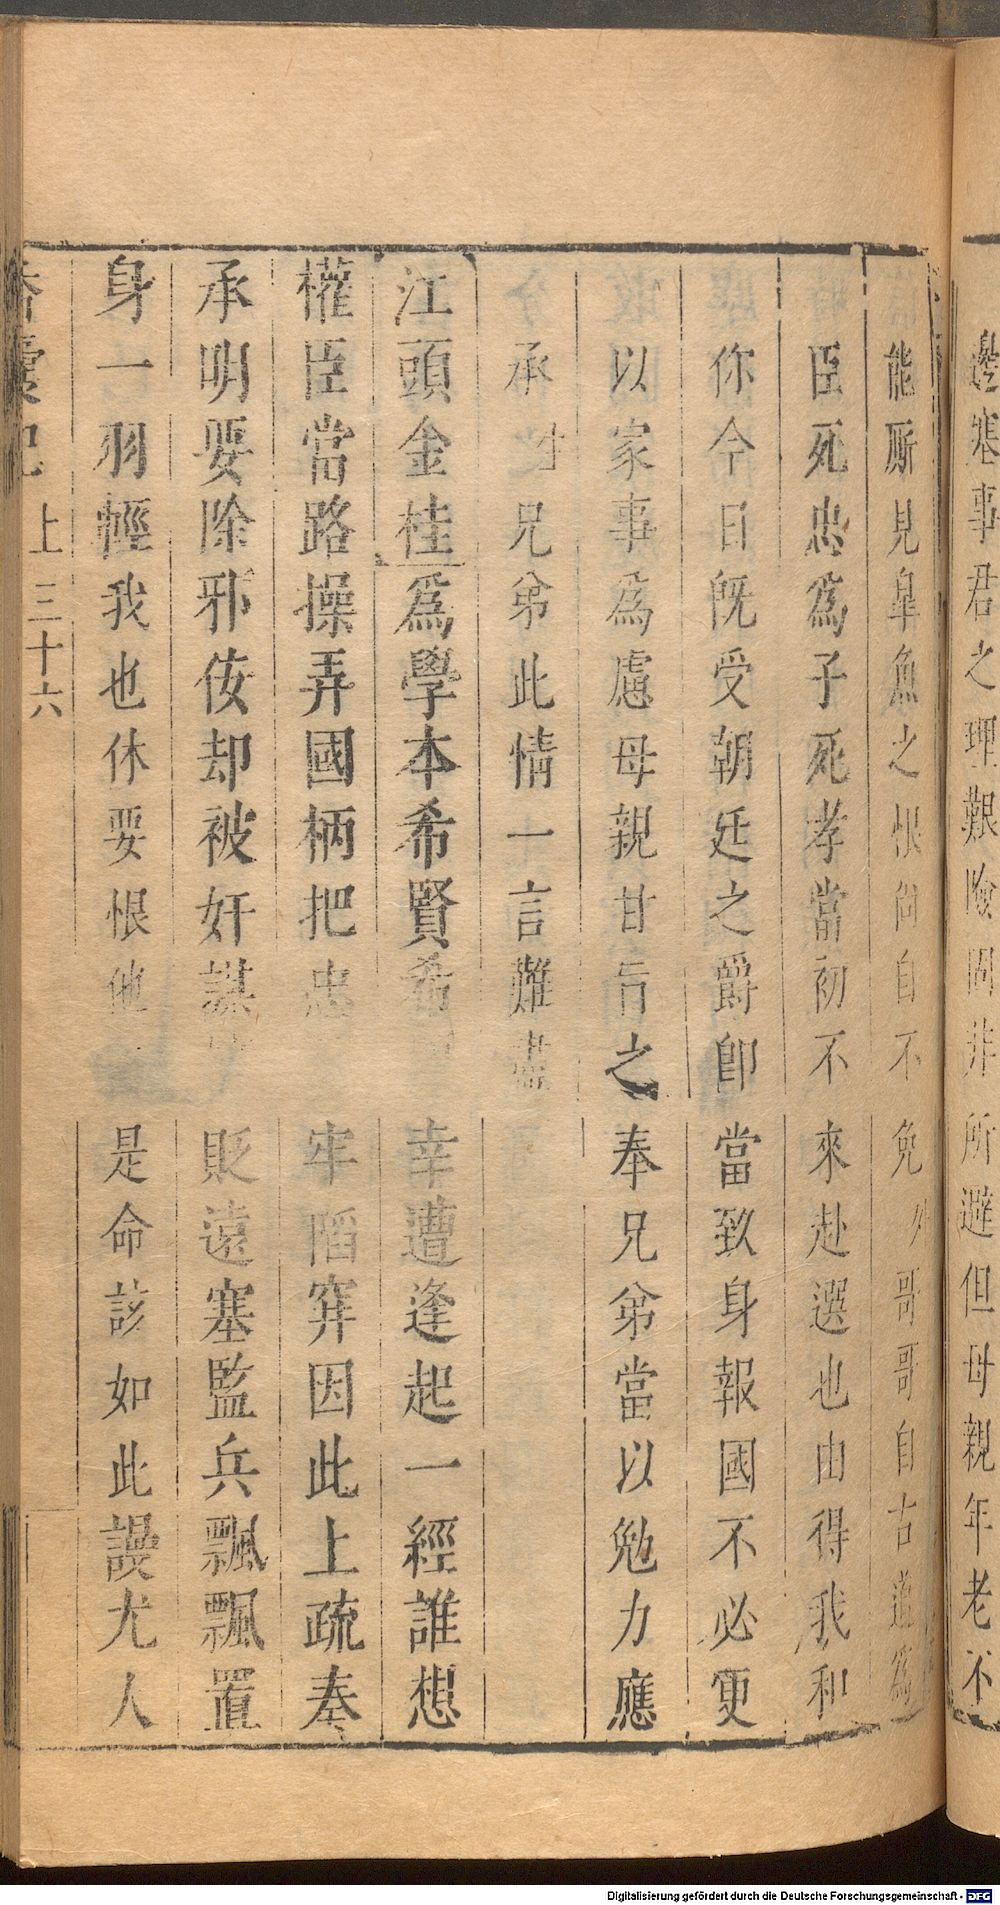 邊塞事君之理艱險固非所避但母親年老不
能厮見臯魚之恨尚自不免外哥哥自古道爲
臣死忠爲子死孝當初不來赴選也由得我和
你今日旣受朝廷之爵卽當致身報國不必更
以家事爲慮母親甘旨之奉兄弟當以勉力應
承 兄弟此情一言難盡
江頭金桂爲學本希賢希 幸遭逢起一經誰想
權臣當路操弄國柄把忠 牢陷穽因此上疏奏
承明要除邪佞却被奸謀 貶遠塞監兵飄飄置
身一羽輕我也休要恨他 是命該如此謾尤人
香囊記 上 三十六
Digitalisierung gefördert durch die Deutsche Forschungsgemeinschaft - DFG